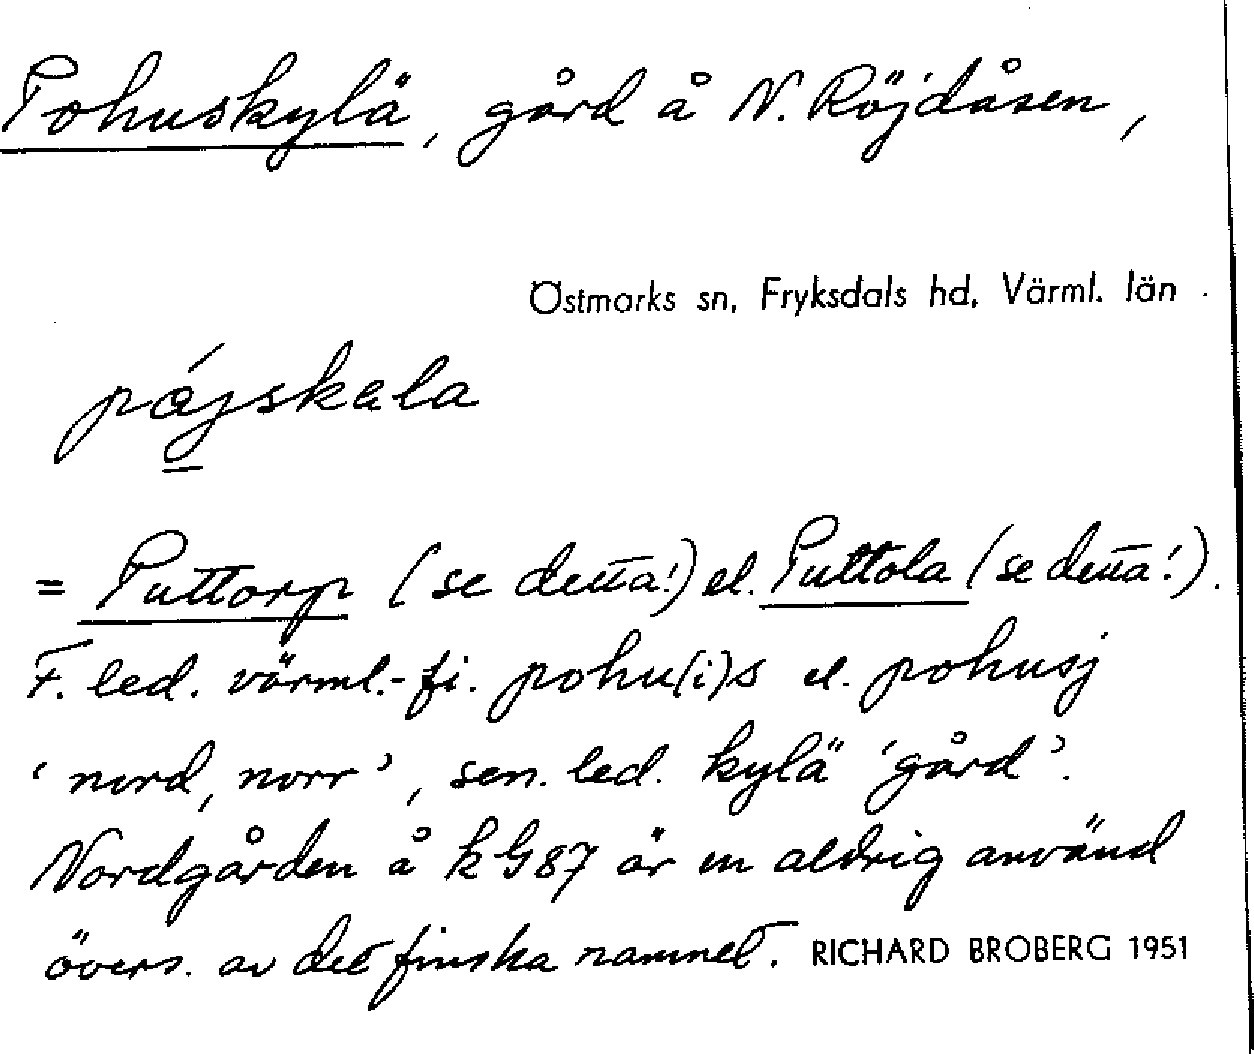 Pohuskylä, gård å N. Röjdåsen,
Östmarks sn, Fryksdals hd, Värml. län
= Puttorp (se detta!) el. Puttola (se detta!).
F. led. värml.-fi. pohu(i)s el. pohusj
‘nord, norr’, sen. led. kylä ‘gård’.
Nordgården å kG87 är en aldrig använd
övers. av det finska namnet. RICHARD BROBERG 1951